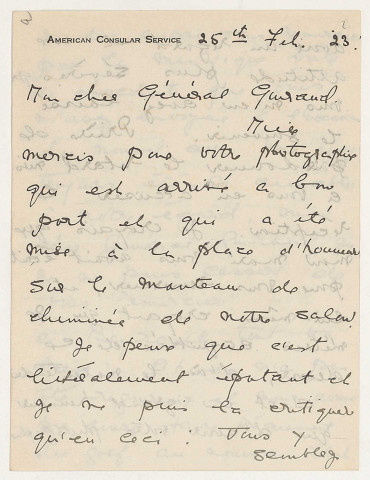 AMERICAN CONSULAR SERVICE 26th Feb. 23.
Mon cher Général Gouraud.
Mille
mercis pour votre photographie
qui est arrivé a bon
port et qui a été
mise à la place d'honneur
sur le manteau de
cheminée de notre salon.
Je pense que c'est
littéralement épatant et
Je ne puis la critiquer
qu'en ceci : Vous y
semblez